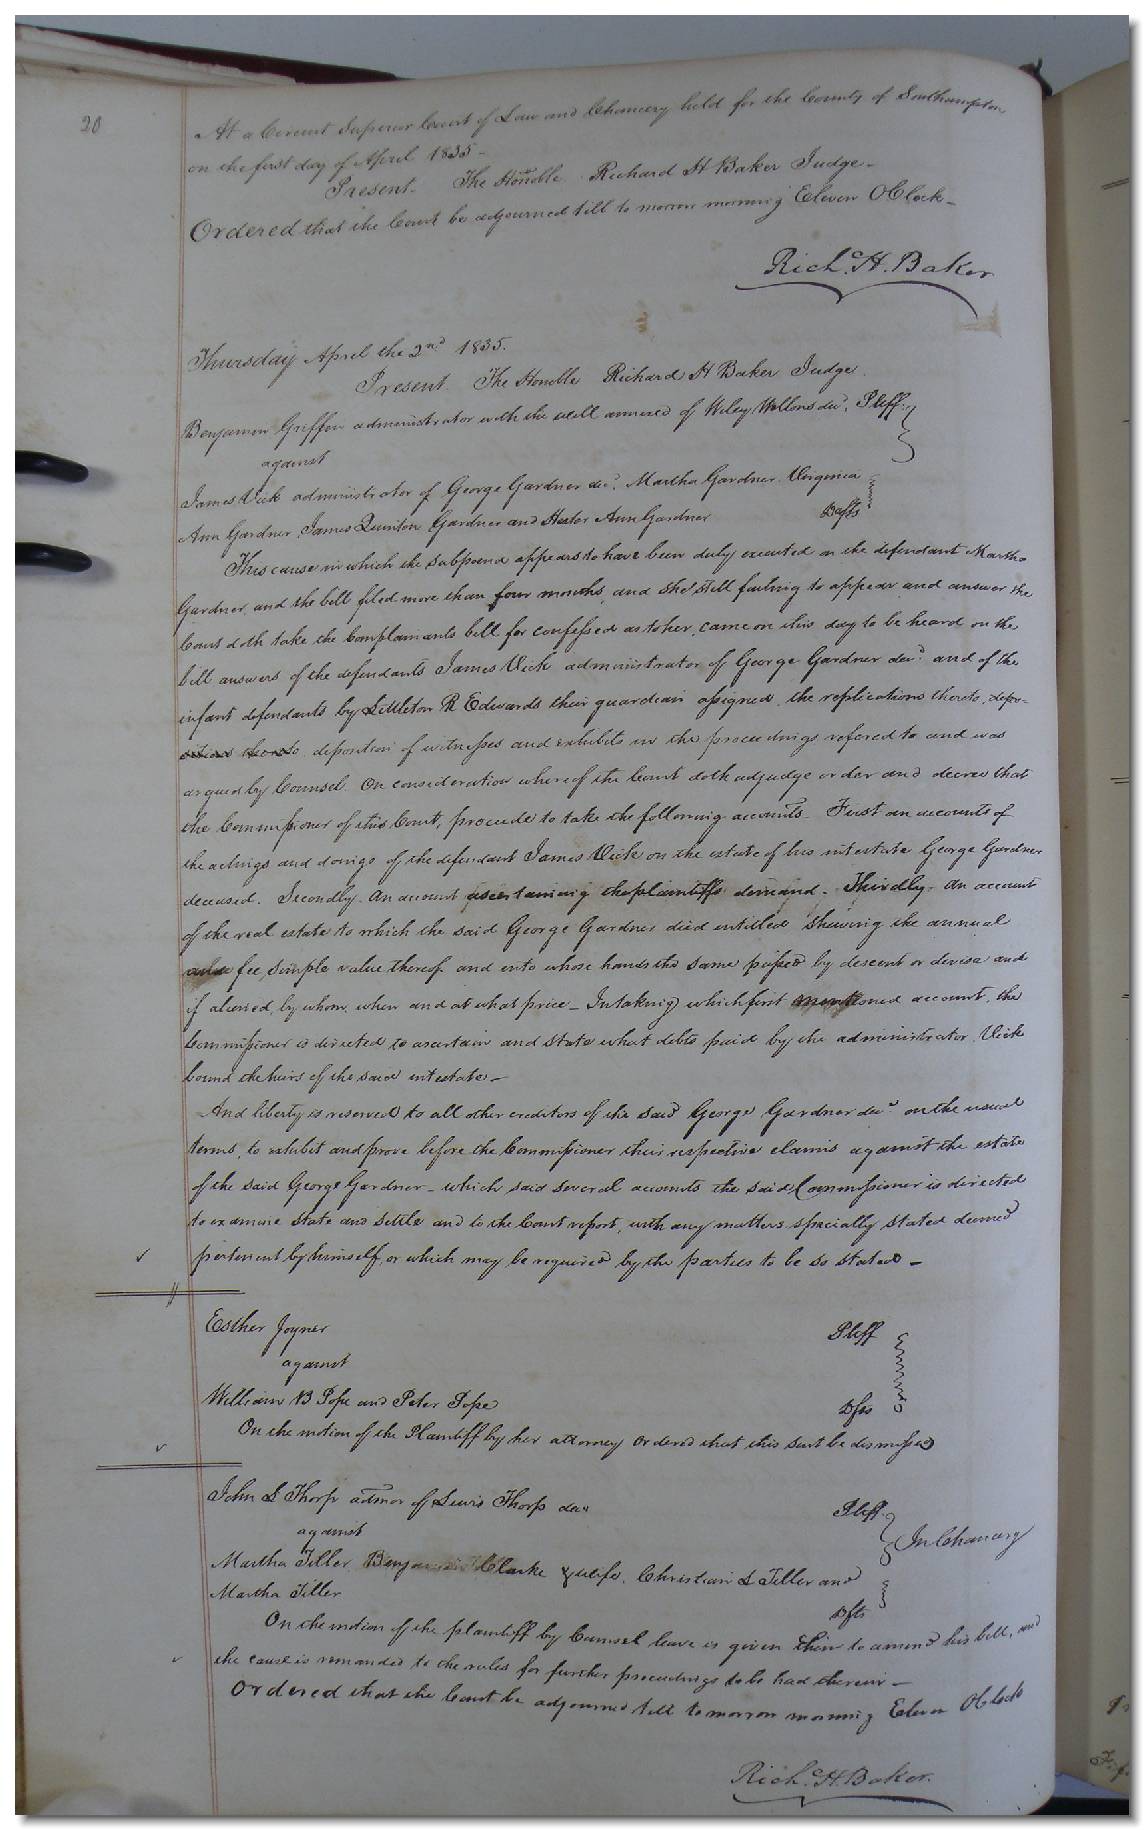 20
At a Circuit Superior Court of Law and Chancery held for the County of Southampton
on the first day of April 1835 -
Present. The Honble Richard H Baker Judge -
Ordered that the Court be adjourned till to morrow morning Eleven OClock -
Rich.d H. Baker
Thursday April the 2nd 1835.
Present The Honble Richard H Baker Judge
Benjamin Griffin administrator with the will annexed of Wiley Wellons dec.d Pltff
against
James Vick administrator of George Gardner dec.d Martha Gardner Virginia
Ann Gardner James Quinton Gardner and Hester Ann Gardner Defts
This cause in which the subpoena appears to have been duly executed on the defendant Martha
Gardner, and the bill filed more than four months, and she still failing to appear and answer the
Court doth take the Complainants bill for confessed as to her, came on this day to be heard on the
bill answers of the defendants James Vick administrator of George Gardner dec.d and of the
infant defendants by Littleton R Edwards their guardian assigned, the replications thereto, depo-
sitions thereto deposition of witnesses and exhibits in the proceedings refered to and was
argued by Counsel. On consideration whereof the Court doth adjudge order and decree that
the Commissioner of this Court, proceede to take the following accounts - First an accounts of
the actings and doings of the defendant James Vick on the estate of his intestate George Gardner
deceased. Secondly. An account ascertaining the plaintiffs demand - Thirdly - An account
of the real estate to which the said George Gardner died entitled shewing the annual
value fee, simple value thereof and into whose hands the same passed by descent or devise and
if aliened, by whom, when and at what price - In taking which first mentioned account, the
Commissioner is directed to ascertain and state what debts paid by the administrator Vick
bound the heirs of the said intestate -
And liberty is reserved to all other creditors of the said George Gardner dec.d on the usual
terms, to exhibit and prove before the Commissioner their respective claims against the estate
of the said George Gardner - which said several accounts the said Commissioner is directed
to examine state and settle and to the Court report, with any matters specially stated deemed
pertinent by himself, or which may be required by the parties to be so stated -
Esther Joyner Pltff
against
William B Pope and Peter Pope Dfts
On the motion of the Plaintiff by her attorney ordered that this suit be dismissed
John L Thorp admor of Lewis Thorp dec.d Pltff
against In Chancery
Martha Tiller, Benjamin Clarke & wife, Christian L Tiller and
Martha Tiller Dfts
On the motion of the plaintiff by Counsel leave is given him to amend his bill, and
the cause is remanded to the rules for further proceedings to be had therein -
Ordered that the Court be adjourned till tomorrow morning Eleven OClock
Rich.d H. Baker.